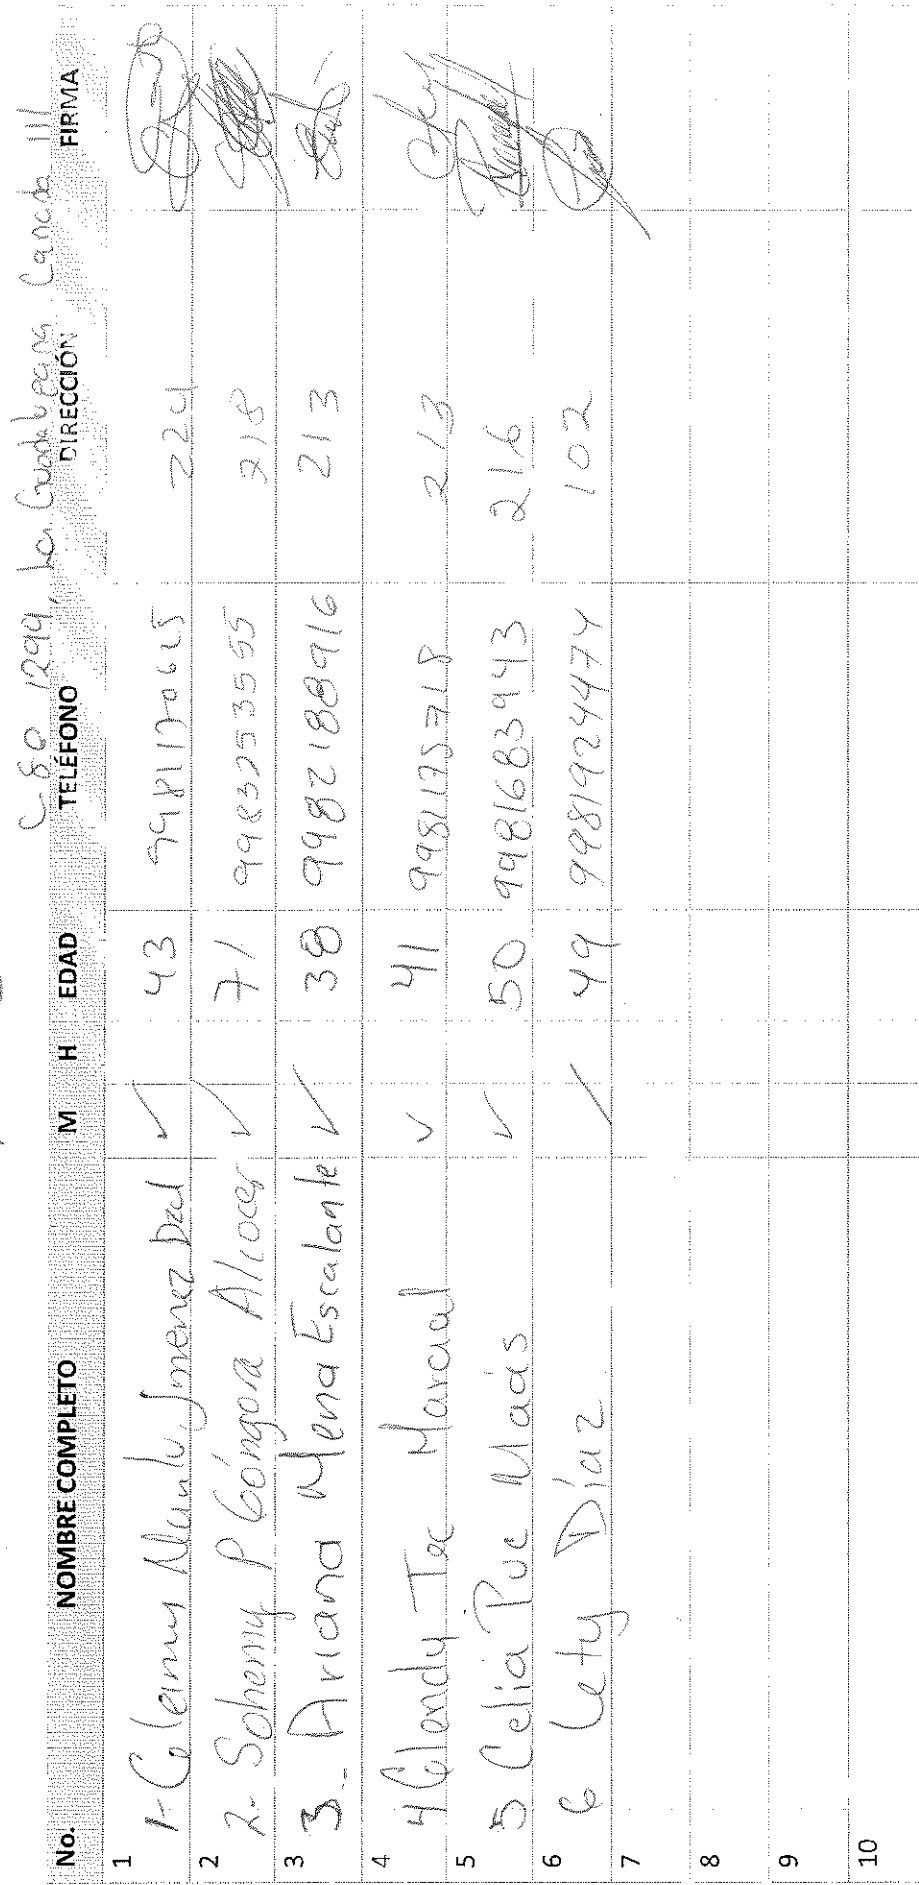 C. 80 1299, La Guadalupana Cancún III
No. NOMBRE COMPLETO M H EDAD TELÉFONO DIRECCIÓN FIRMA
1 1- Jimenez Dzul ✓ 43 9981170625 224
2 2- Sohemy P Góngora Alcocer ✓ 71 9983253555 218
3 3- Ariana Mena Escalante ✓ 38 9982188916 213
4 4 Glendy Tec Marcial ✓ 41 9981175718 213
5 5 Celia Puc Maás ✓ 50 9981683943 216
6 6 Lety Díaz ✓ 49 9981924474 102
7
8
9
10